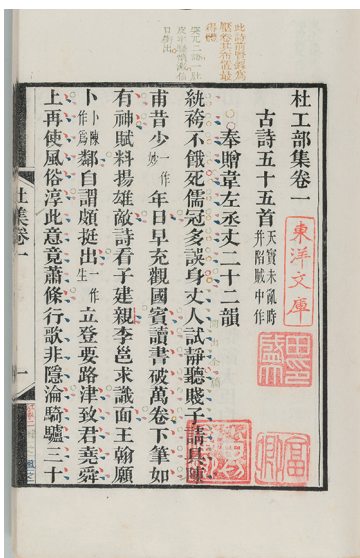 杜工部集卷一
東洋文庫
古詩五十五首天寶未亂時并陷賊中作
奉贈韋左丞丈二十二韻
紈袴不餓死儒冠多誤身丈人試靜聽賤子請具陳
甫昔少一作妙年日早充觀國賓讀書破萬卷下筆如
有神賦料揚雄敵詩看子建親李邕求識面王翰願
卜卜陳作為鄰自謂頗挺出一作生立登要路津致君堯舜
上再使風俗淳此意竟蕭條行歌非隱淪騎驢三十
杜集卷一
一